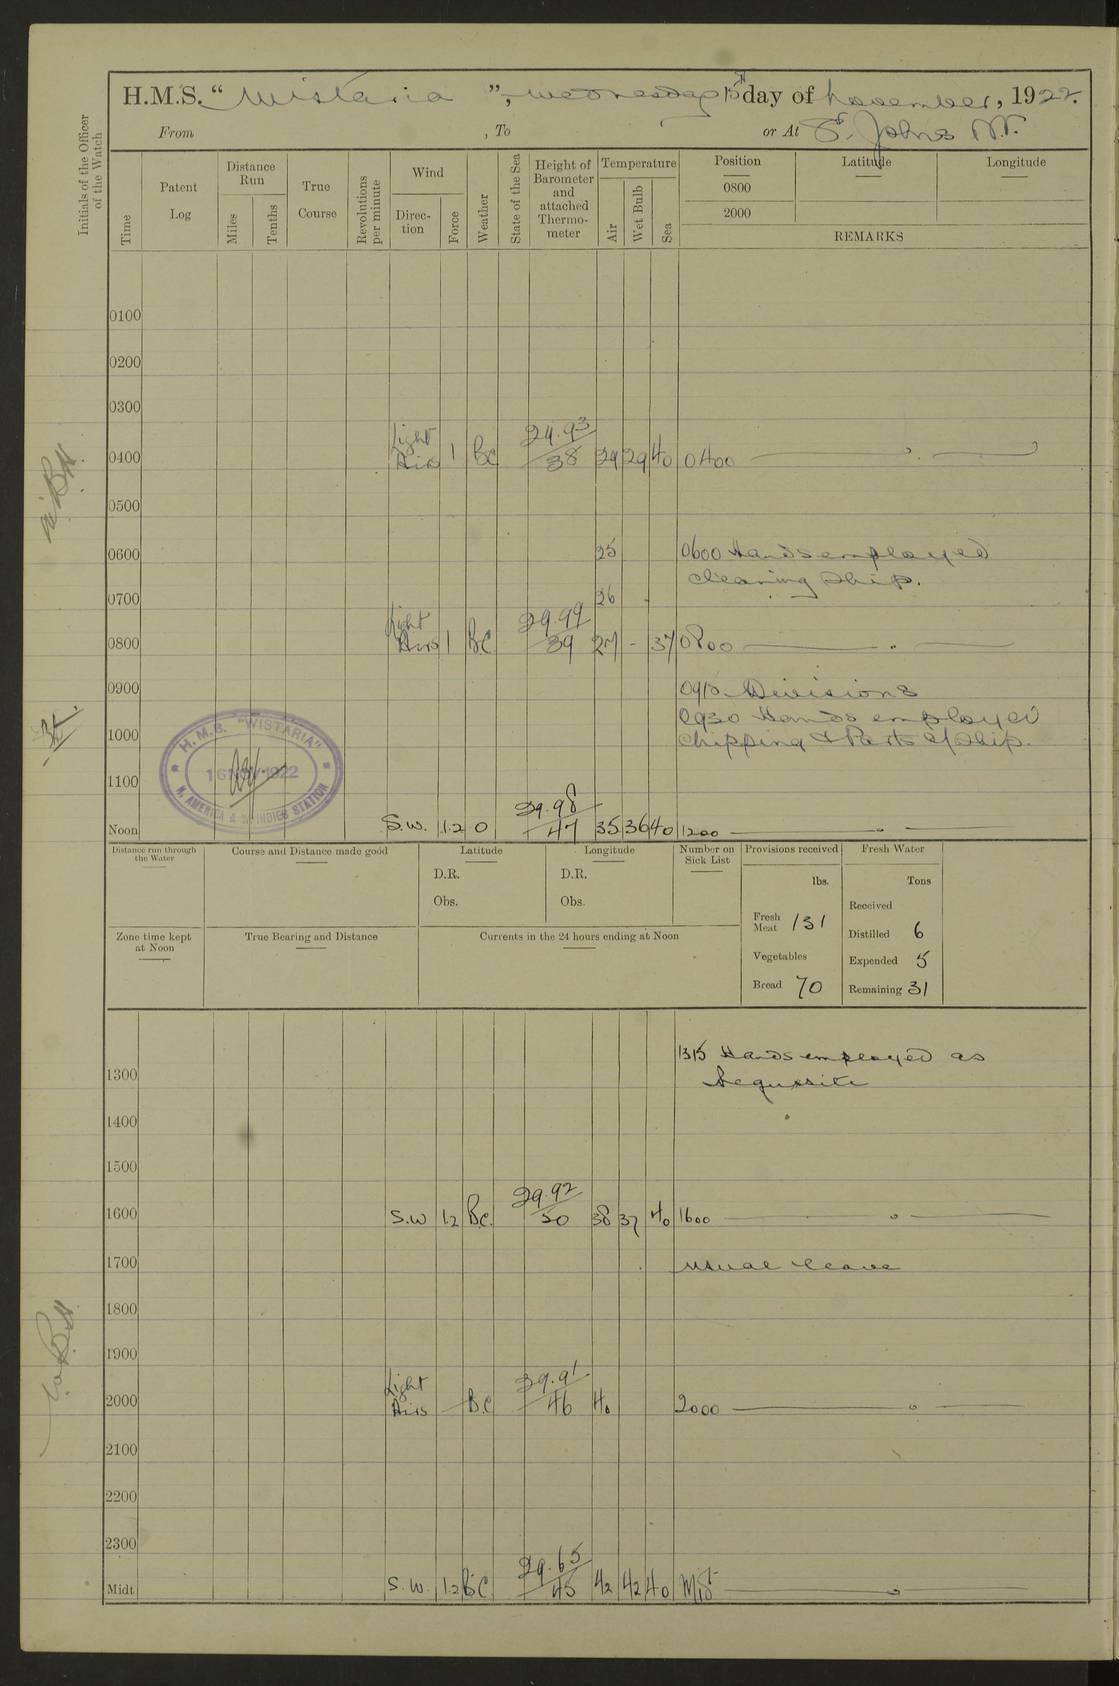 H.M.S. “ Wistaria ”, Wednesday 15th day of November, 1922.
From , To or At St. Johns N.F.
Initials of the Officer of the Watch
Time
Patent Log
Distance Run
Miles
Tenths
True Course
Revolutions per minute
Wind
Direc-tion
Force
Weather
State of the Sea
Height of Barometer and attached Thermo-meter
Temperature
Air
Wet Bulb
Sea
Position
Latitude
Longitude
0800
2000
REMARKS
0100
0200
0300
0400 Light Airs 1 BC 29.93 / 38 29 29 40 0400
0500
0600 25 0600 Hands employed
cleaning Ship.
0700 26
0800 Light Airs 1 BC 29.99 / 39 27 - 37 0800
0900 0915 Divisions
0930 Hands employed
1000 Chipping & Parts of Ship.
H.M.S. "WISTARIA"
16 NOV 1922
N. AMERICA & W. INDIES STATION
1100
Noon S.W. 1.2 O 29.98 / 47 35 36 40 1200
Distance run through the Water
Course and Distance made good
Latitude
D.R.
Obs.
Longitude
D.R.
Obs.
Number on Sick List
Provisions received
lbs.
Fresh Meat 131
Vegetables
Bread 70
Fresh Water
Tons
Received
Distilled 6
Expended 5
Remaining 31
Zone time kept at Noon
True Bearing and Distance
Currents in the 24 hours ending at Noon
1315 Hands employed as
1300 Requisite
1400
1500
1600 S.W 1.2 B.C. 29.92 / 50 38 37 40 1600
1700 Usual leave
1800
1900
2000 Light Airs BC 29.91 / 46 40 2000
2100
2200
2300
Midt S.W. 1.2 BC 29.65 / 45 42 42 40 Midt